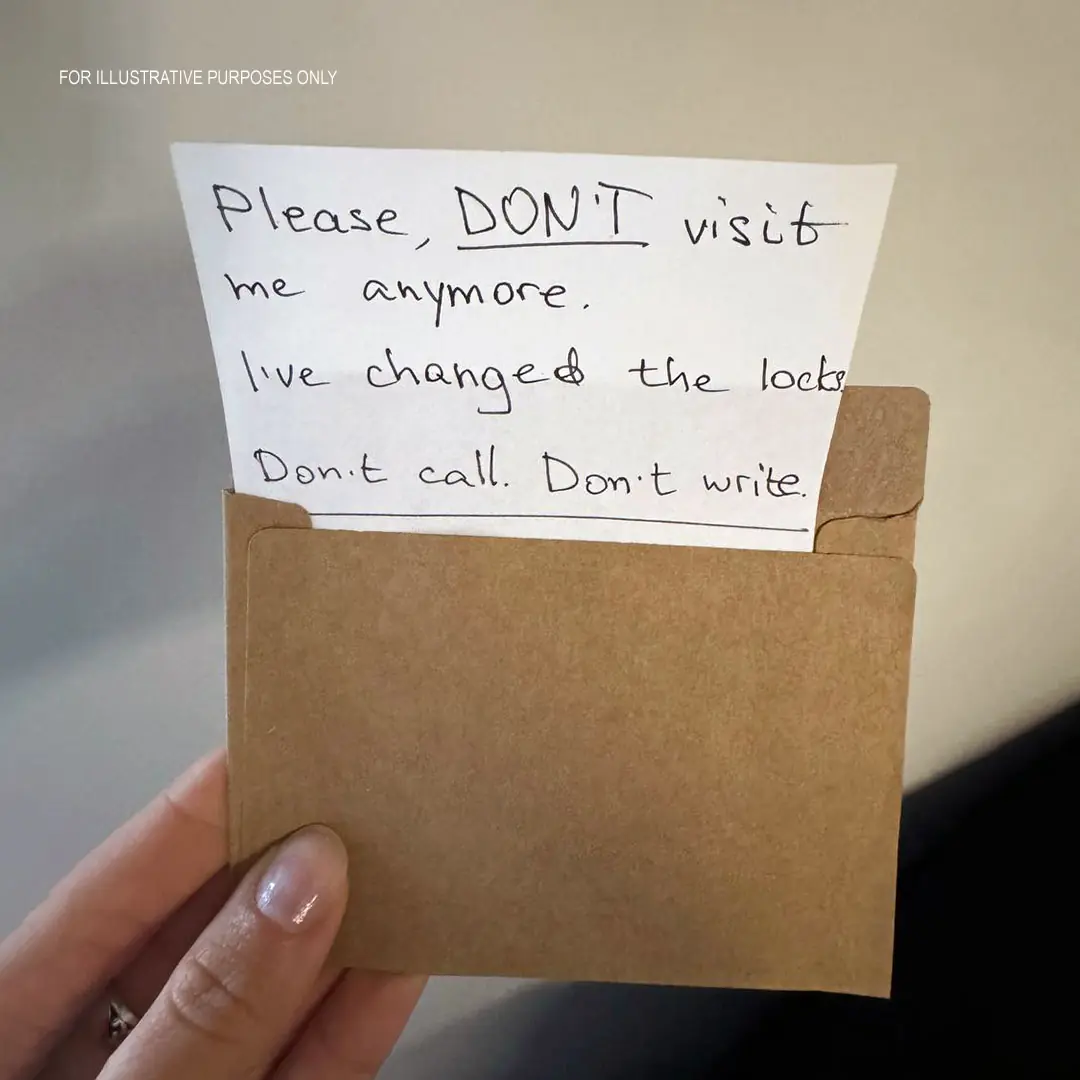 FOR ILLUSTRATIVE PURPOSES ONLY
Please, DON'T visit
me anymore.
I've changed the locks
Don't call. Don't write.